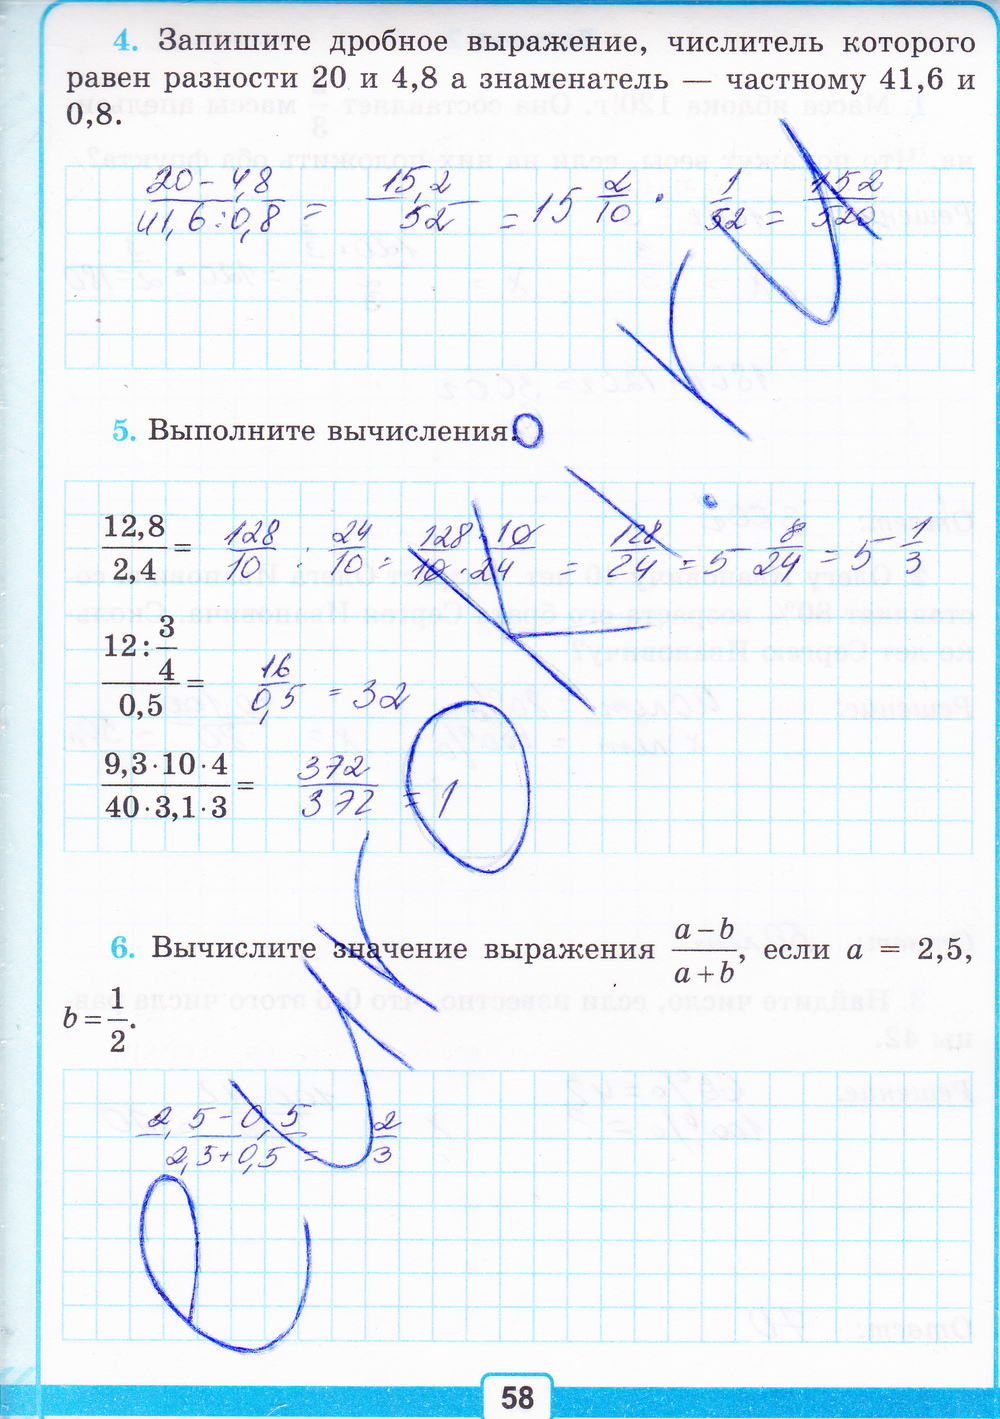 4. Запишите дробное выражение, числитель которого
равен разности 20 и 4,8 а знаменатель — частному 41,6 и
0,8.
20 - 4,8 / 41,6 : 0,8 = 15,2 / 52 = 15 2/10 · 1/52 = 152/520
5. Выполните вычисления.
12,8 / 2,4 = 128/10 : 24/10 = 128 · 10 / 10 · 24 = 128/24 = 5 8/24 = 5 1/3
12 : 3/4 / 0,5 = 16 / 0,5 = 32
9,3 · 10 · 4 / 40 · 3,1 · 3 = 372 / 372 = 1
6. Вычислите значение выражения a - b / a + b, если a = 2,5,
b = 1/2.
2,5 - 0,5 / 2,5 + 0,5 = 2/3
58